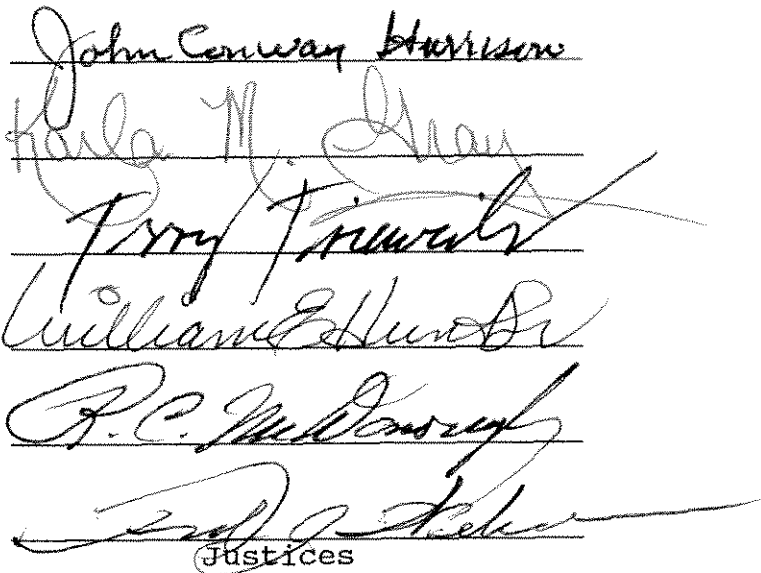 John Conway Harrison
Karla M. Gray
Terry Trieweiler
William E Hunt Sr
R. C. McDonough
Justices